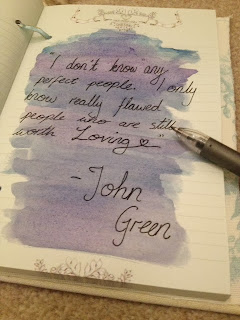 "I don't know any
perfect people. I only
know really flawed
people who are still
worth Loving ♡"
-John
Green